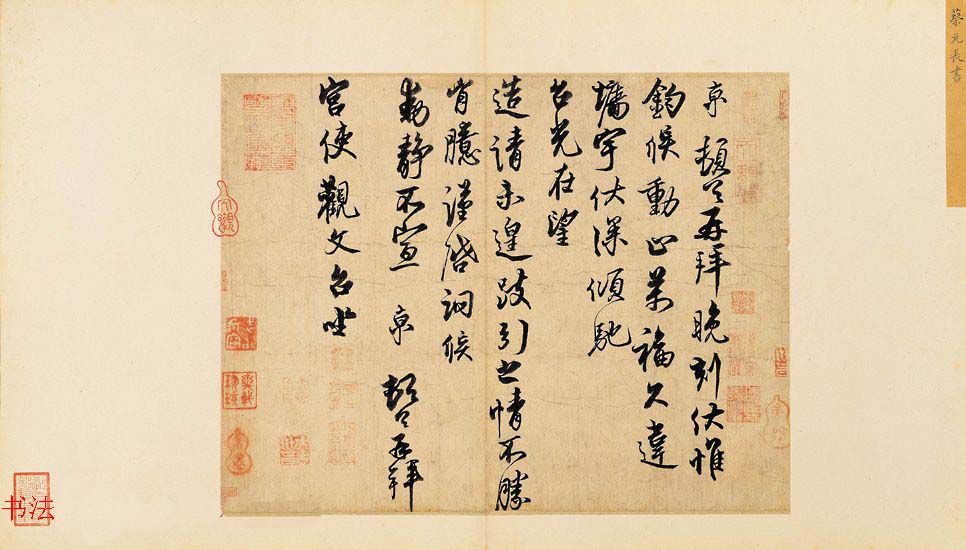 蔡元長書
京頓首再拜晚刻伏惟
鈞候動止萬福久違
墻宇伏深傾馳
台光在望
造請未遑跂引之情不勝
胷臆謹啓詢候
動靜不宣京頓首再拜
宮使觀文台坐
书法